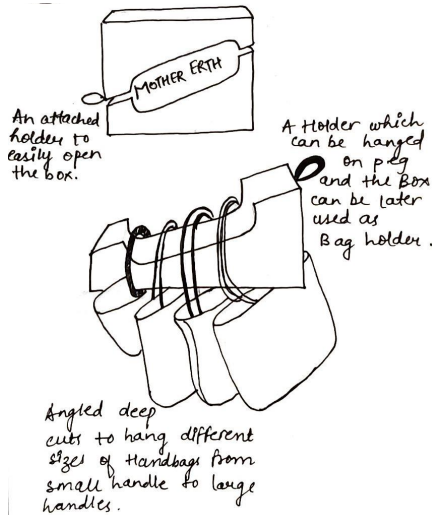 MOTHER ERTH
An attached
holder to
easily open
the box.
A Holder which
can be hanged
on peg
and the Box
can be later
used as
Bag holder.
Angled deep
cuts to hang different
sizes of Handbags from
small handle to large
handles.